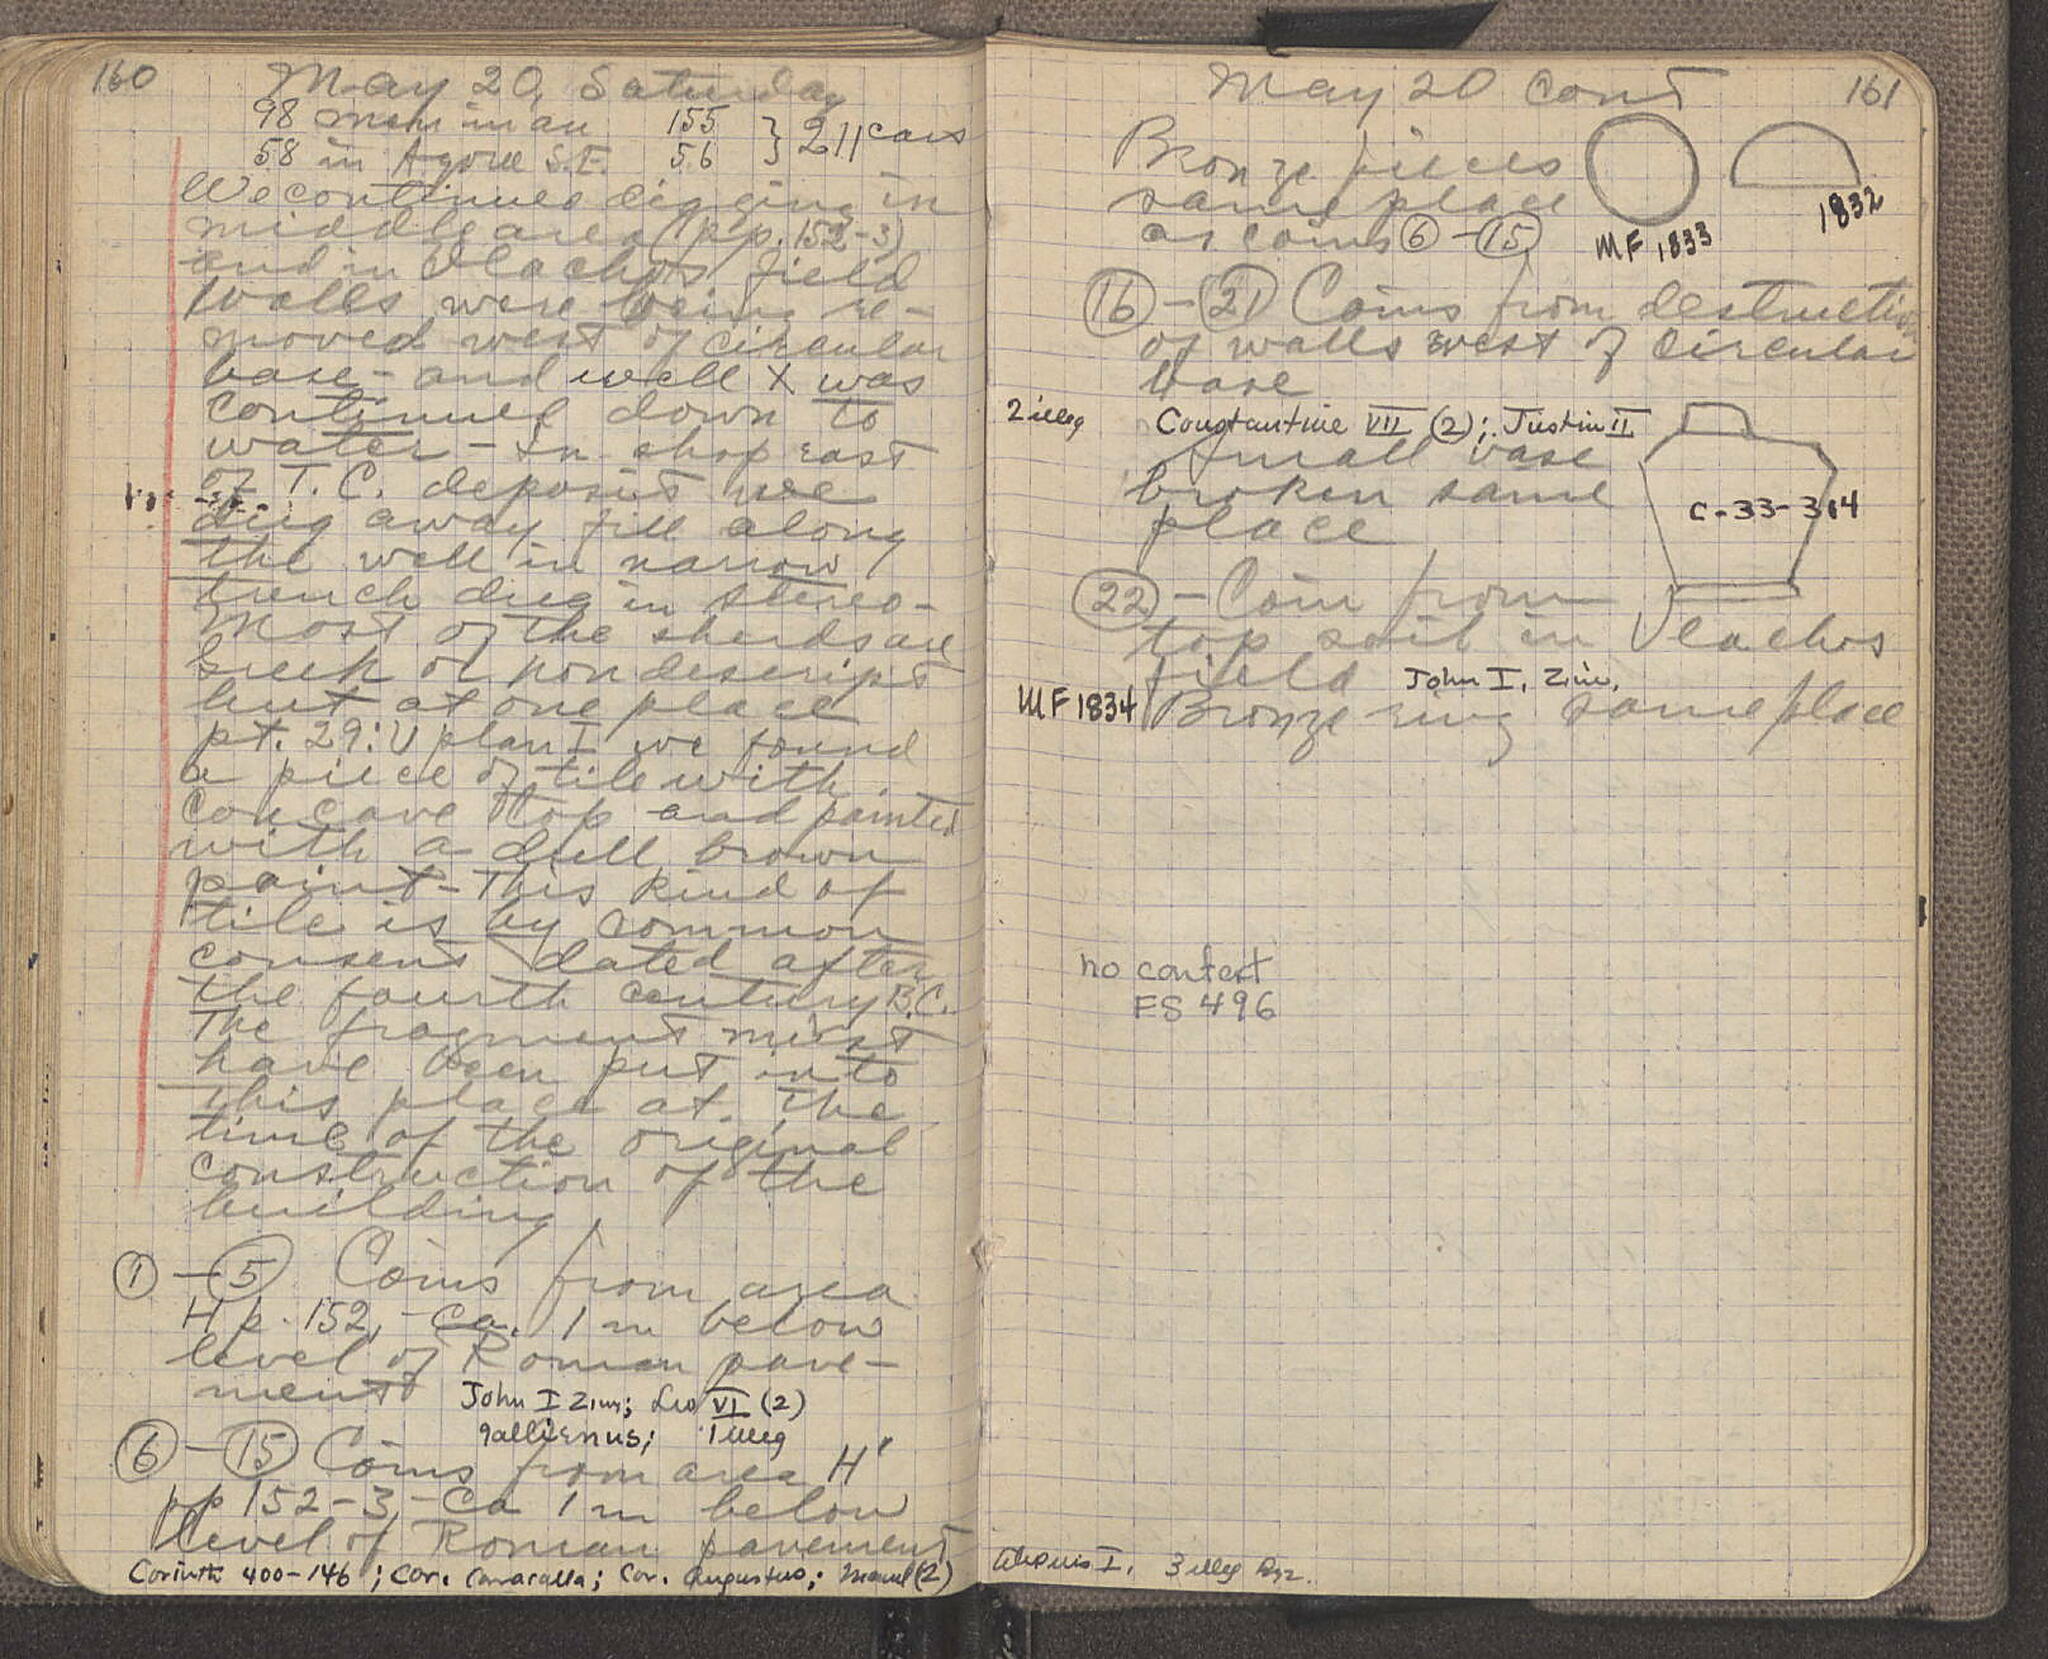 160
May 20, Saturday
98 men in au 155 } 211 cars
58 in Agora S.E. 56
We continued digging in
middle area (pp. 152-3)
and in Vlachos field
Walls were being re-
moved west of circular
base - and well X was
continued down to
water - In shop east
of T. C. deposit we
dug away fill along
the wall in narrow
trench dug in stereo -
Most of the sherds are
Greek or nondescript
but at one place
pt. 29:U plan I we found
a piece of tile with
concave top and painted
with a dull brown
paint - This kind of
tile is by common
consent dated after
the fourth century B.C.
The fragment must
have been put into
this place at the
time of the original
construction of the
building
1 - 5 Coins from area
H p. 152, - ca. 1 m below
level of Roman pave-
ment John I Zim; Leo VI (2)
gallienus; 1 illeg
6 - 15 Coins from area H'
pp 152-3, - Ca 1 m below
level of Roman pavement
Corinth 400-146; Cor. Caracalla; Cor. Augustus; Manuel (2)
May 20 cont 161
Bronze pieces
same place
as coins 6 - 15
MF 1833
1832
16 - 21 Coins from destruction
of walls west of circular
base
2 illeg Constantine VII (2); Justin II
Small vase
broken same
place
C-33-314
22 - Coin from
top soil in Vlachos
field John I, Zim.
MF 1834 Bronze ring same place
no context
FS 496
Alexius I, 3 illeg Byz.